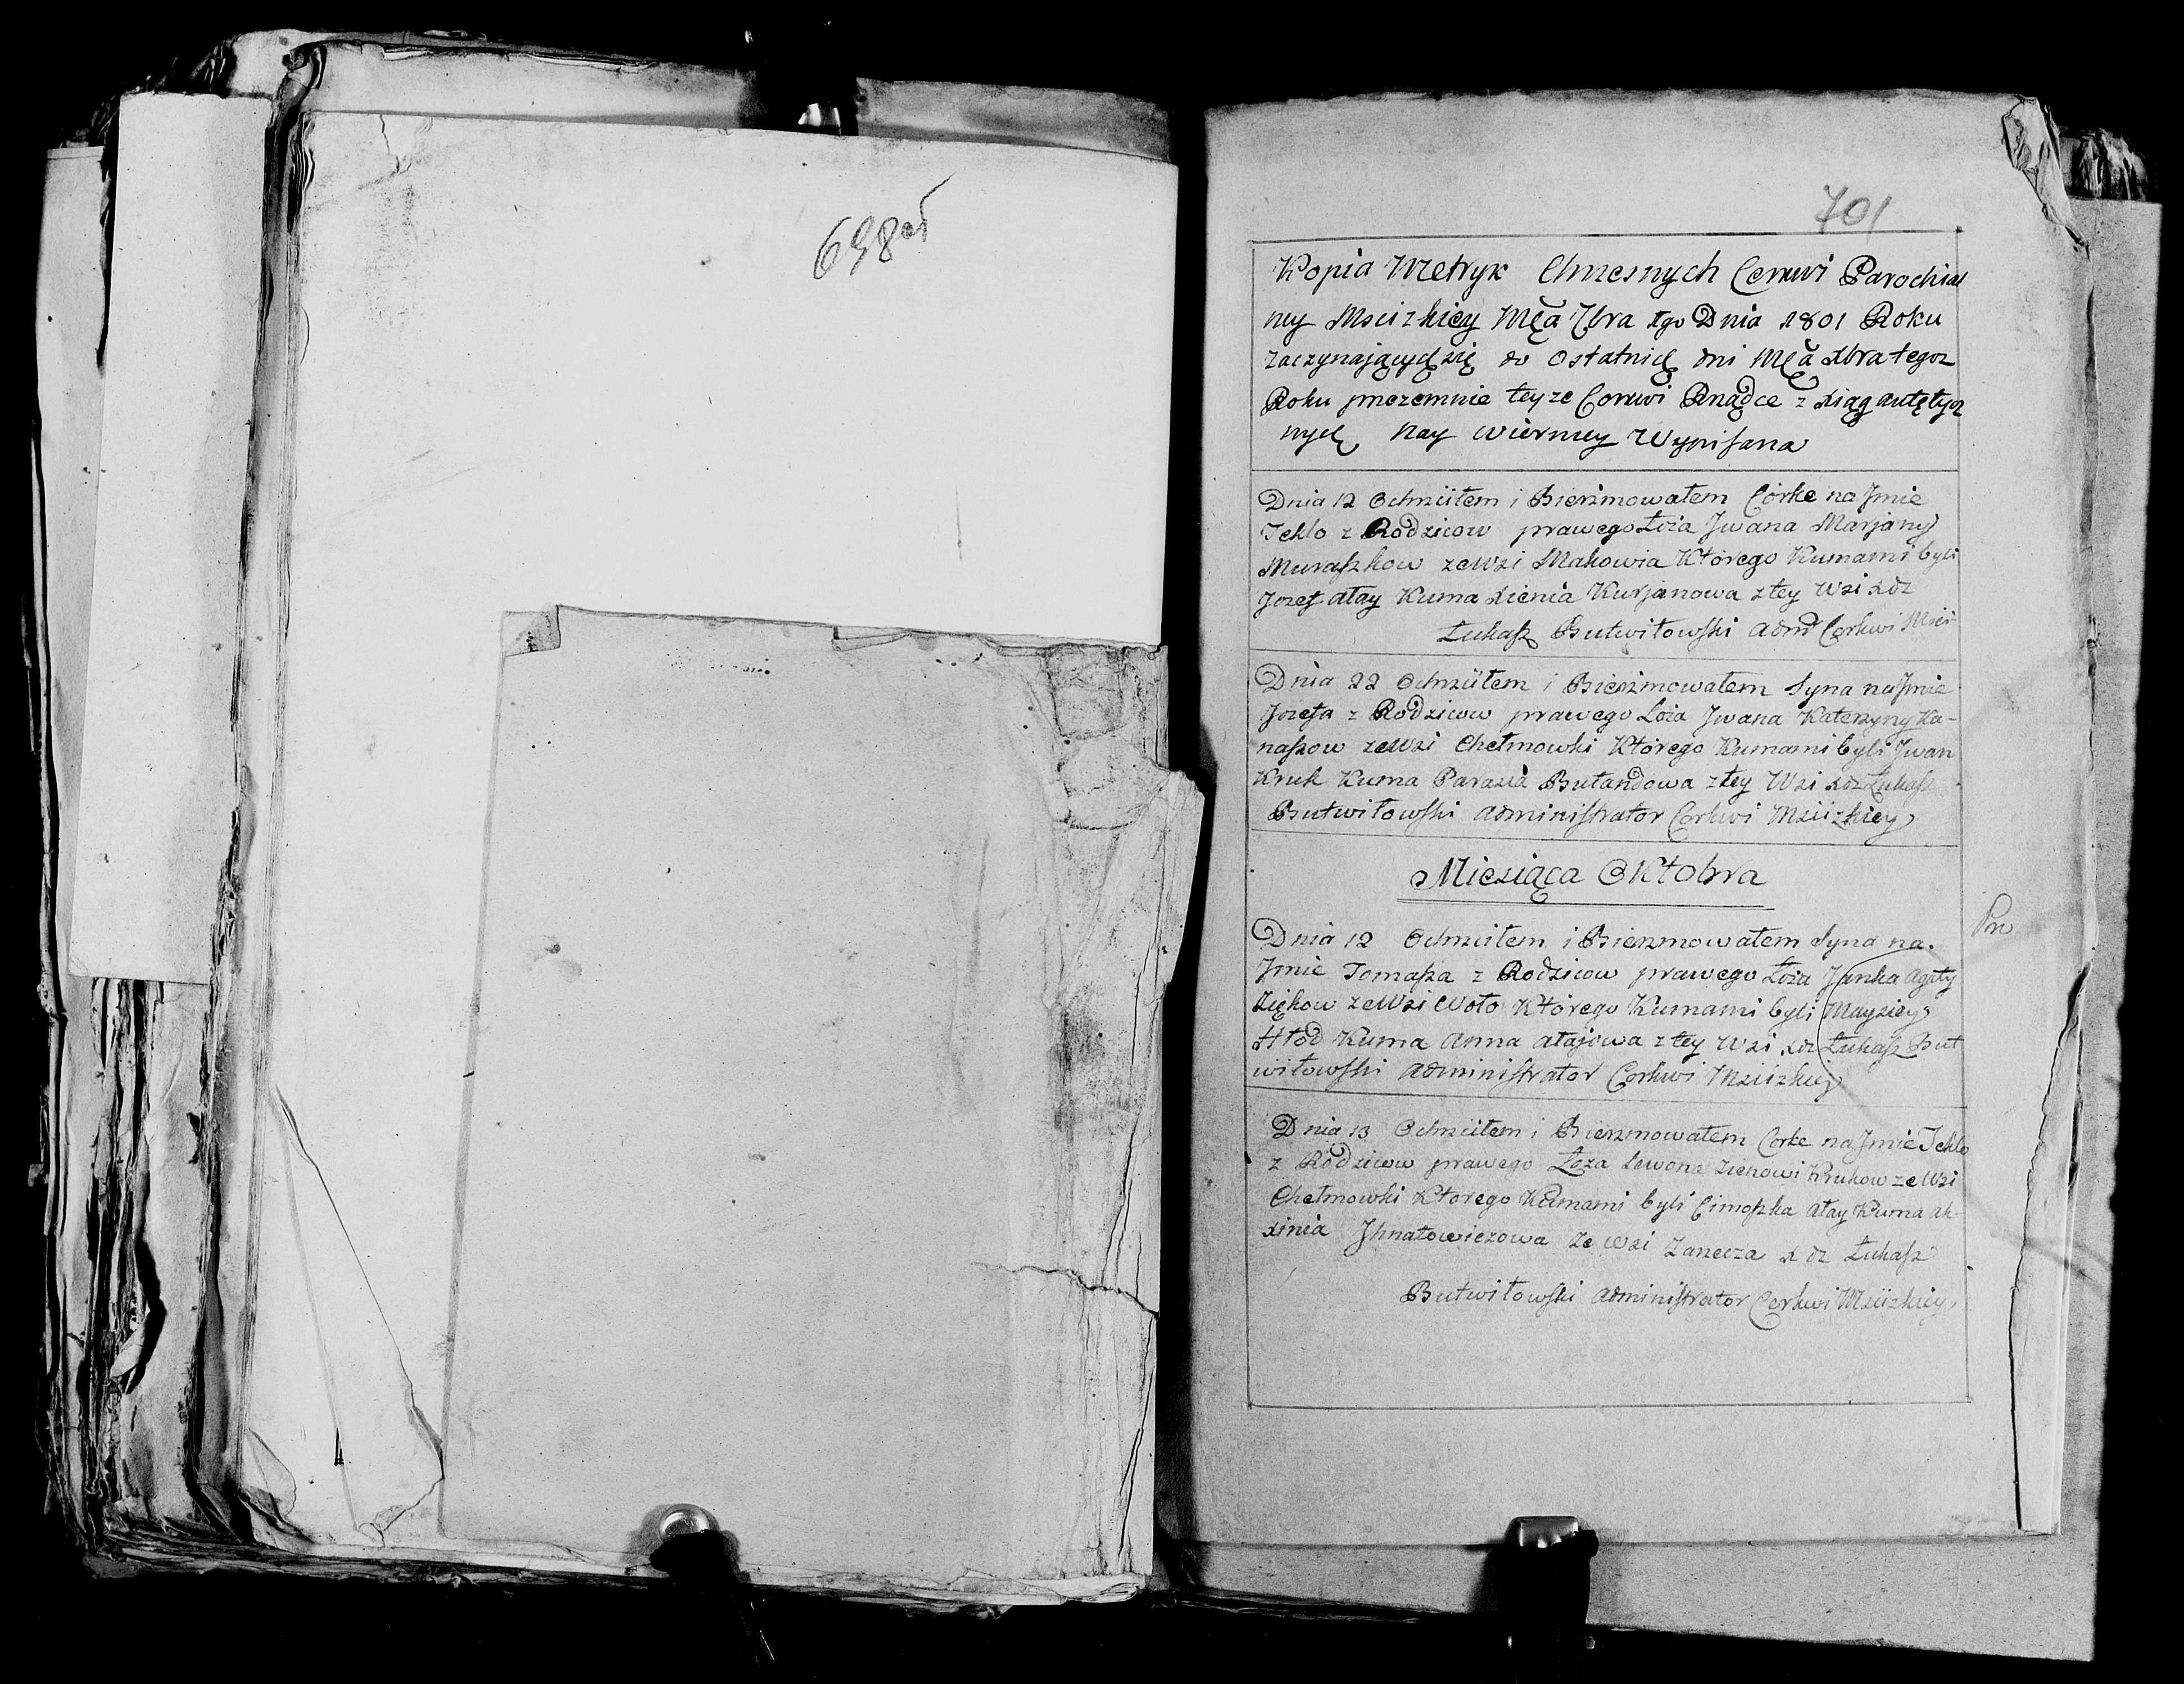 698об
701
Kopia Metryk Chrzesnych Cerkwi Parochial
ney Msciżkiey Mca 7bra 1go Dnia 1801 Roku
zaczynających się do ostatnich dni Mca Xbra tegoz
Roku przezemnie teyze Cerkwi Rządce z Xiąg autętycz
nych nay wierniey Wypisana
Dnia 12 Ochrzciłem i Bierzmowałem Córke na Jmie
Teklo z Rodzicow prawego Łoża Jwana Marjany
Muraszkow ze Wsi Makowia Którego Kumami byli
Jozef Ałay Kuma Xienia Kurjanowa z tey Wsi Xdz
Łukasz Butwiłowski Admr Cerkwi Msci
Dnia 22 Ochrzciłem i Bierzmowałem Syna na Jmie
Jozefa z Rodzicow prawego Łoża Jwana Katerzyny Ka-
naszow ze Wsi Chełmowki Którego Kumami byli Jwan
Kruk Kuma Parasia Bułandowa z tey Wsi Xdz Łukasz
Butwiłowski Administrator Cerkwi Msciżkiey
Miesiąca Oktobra
Pro
Dnia 12 Ochrzciłem i Bierzmowałem Syna na
Jmie Tomasza z Rodzicow prawego Łoża Janka Agaty
Ziękow ze Wsi Woło Którego Kumami byli Maysiey
Hłod Kuma Anna Ałajowa z tey Wsi Xdz Łukasz But
wiłowski Administrator Cerkwi Msciżkiey
Dnia 13 Ochrzciłem i Bierzmowałem Corke na Jmie Teklo
z Rodzicow prawego Łoza Lewona Zienowi Krukow ze Wsi
Chełmowki Ktorego Kumami byli Cimoszka Ałay Kuma Ak-
xinia Jhnatowiczowa ze Wsi Zarzecza X dz Łukasz
Butwiłowski Administrator Cerkwi Msciżkiey